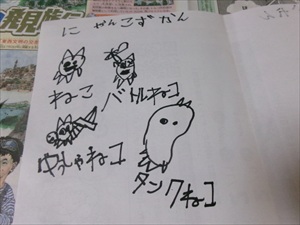 にゃんこずかん
ねこ
バトルネコ
やしゃネコ
タンクねコ